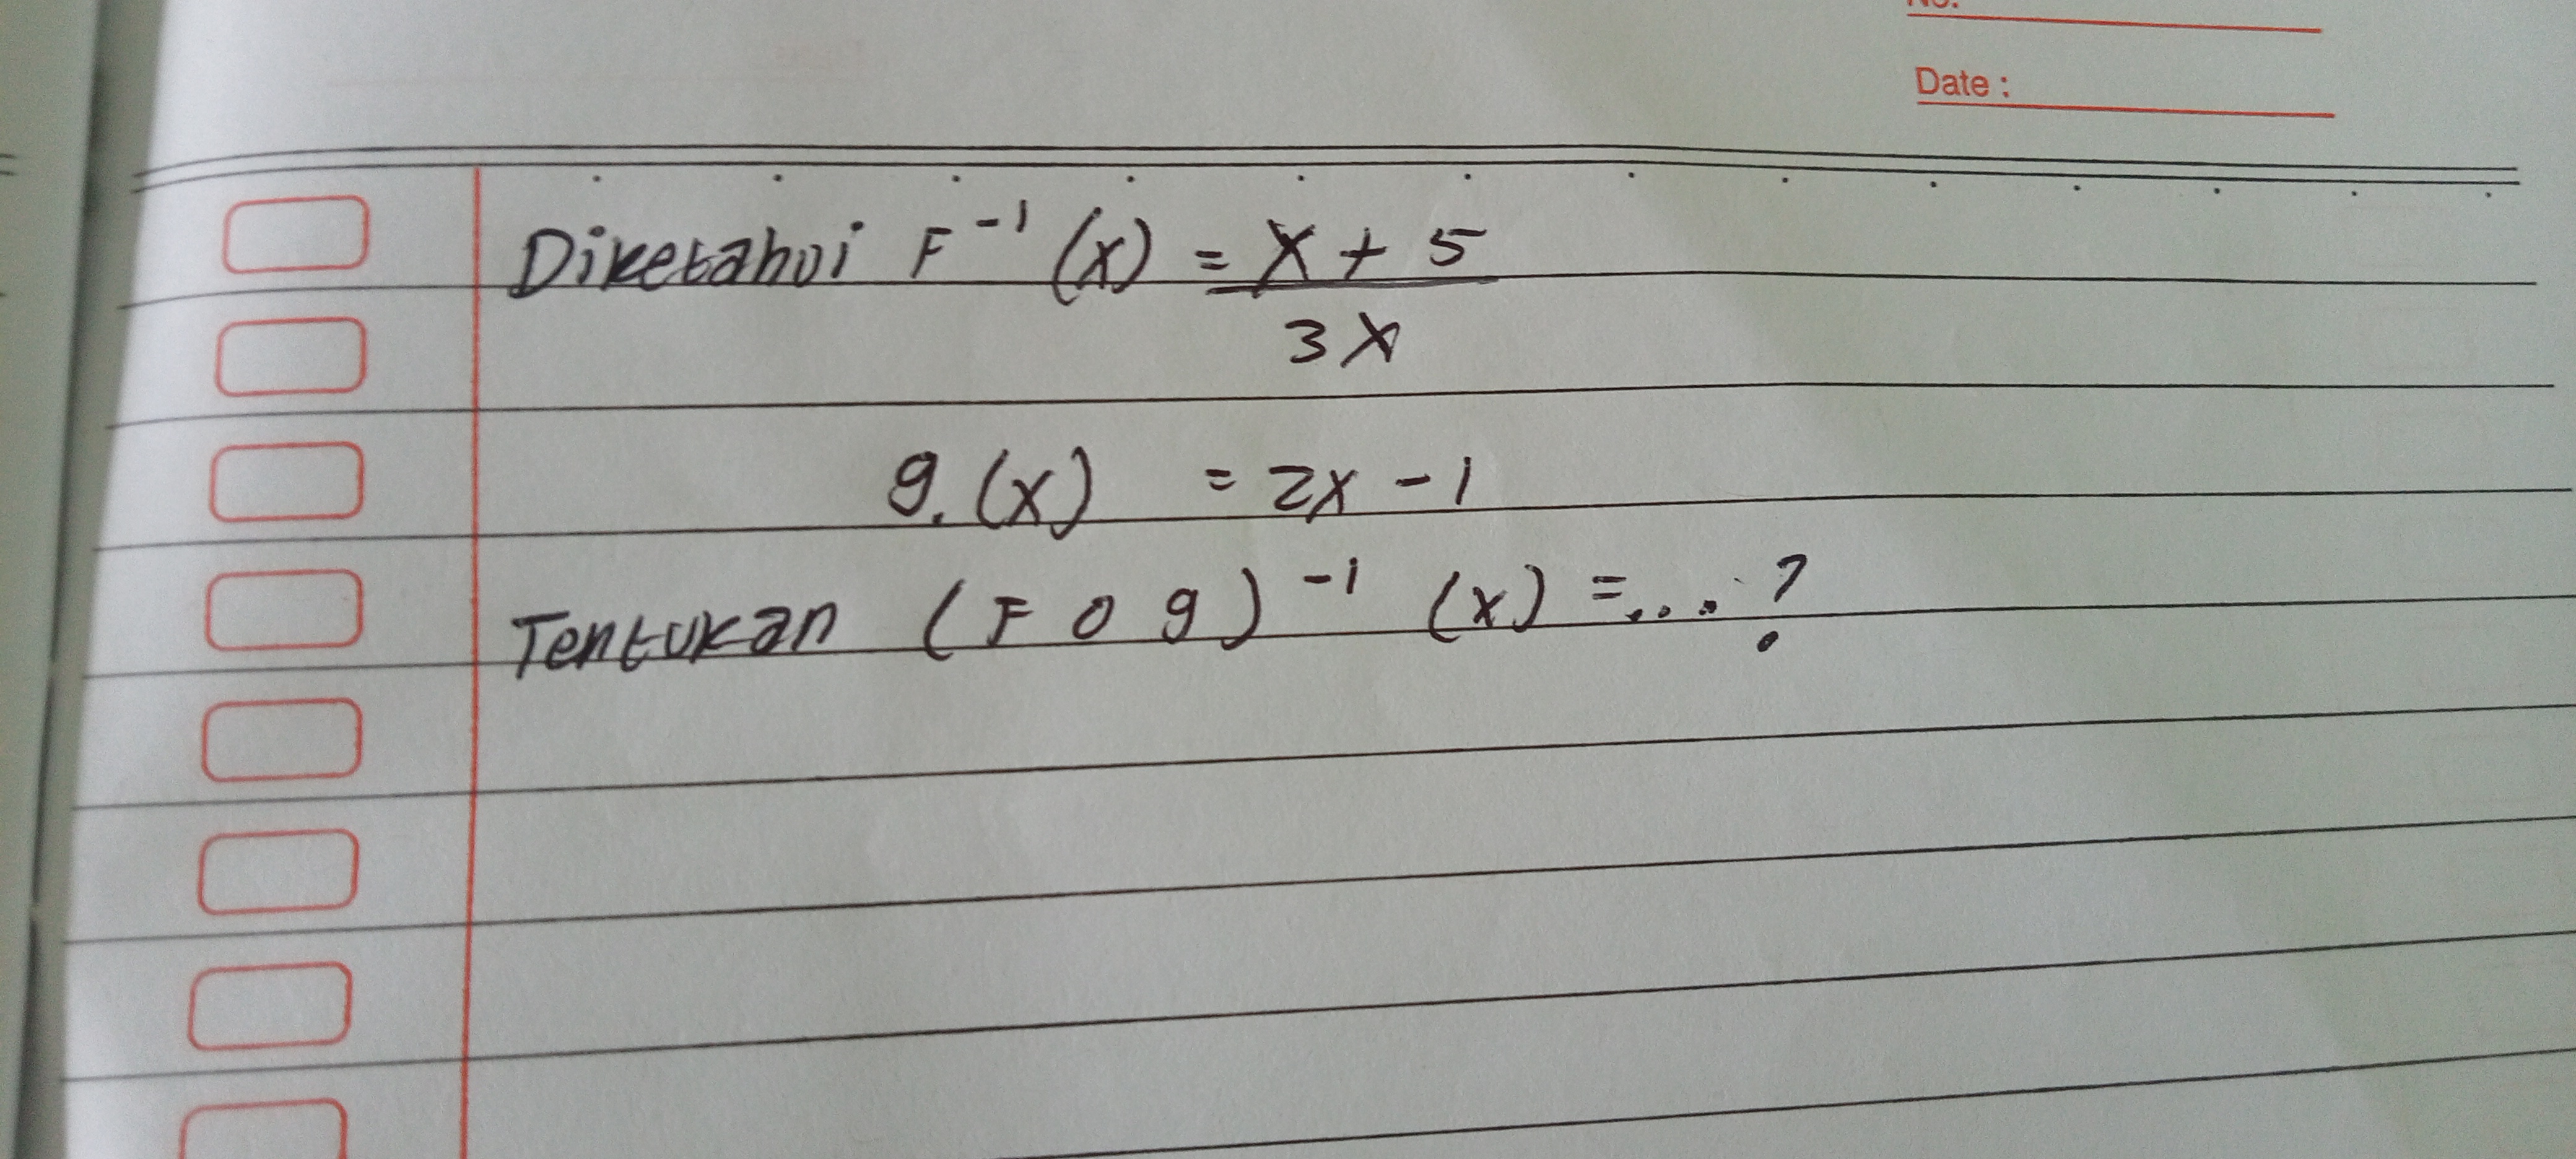 No.
Date :
Diketahui F⁻¹ (x) = x + 5
3x
g. (x) = 2x - 1
Tentukan (F o g)⁻¹ (x) = ... ?